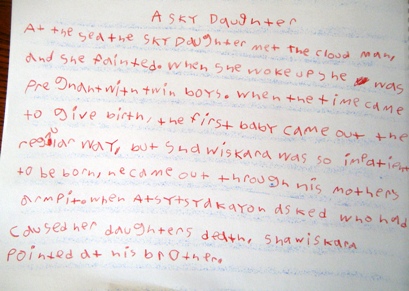 A SKY Daughter
At the sea the SKY Daughter met the cloud man,
and she fainted. When she woke up she was
Pregnant with twin boys. When the time came
to give birth, the first baby came out the
regular way, but Shawiskara was so impatient
to be born, he came out through his mothers
armpit. When Atsytsyakayon asked who had
caused her daughters death, Shawiskara
Pointed at his brother.